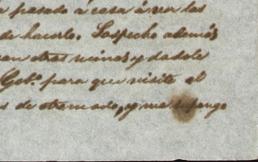 pasado á casa á ver las
de hacerlo. Sospecho además
otras ruinas y dadole
Gob.r para que visite el
de otro modo, y me